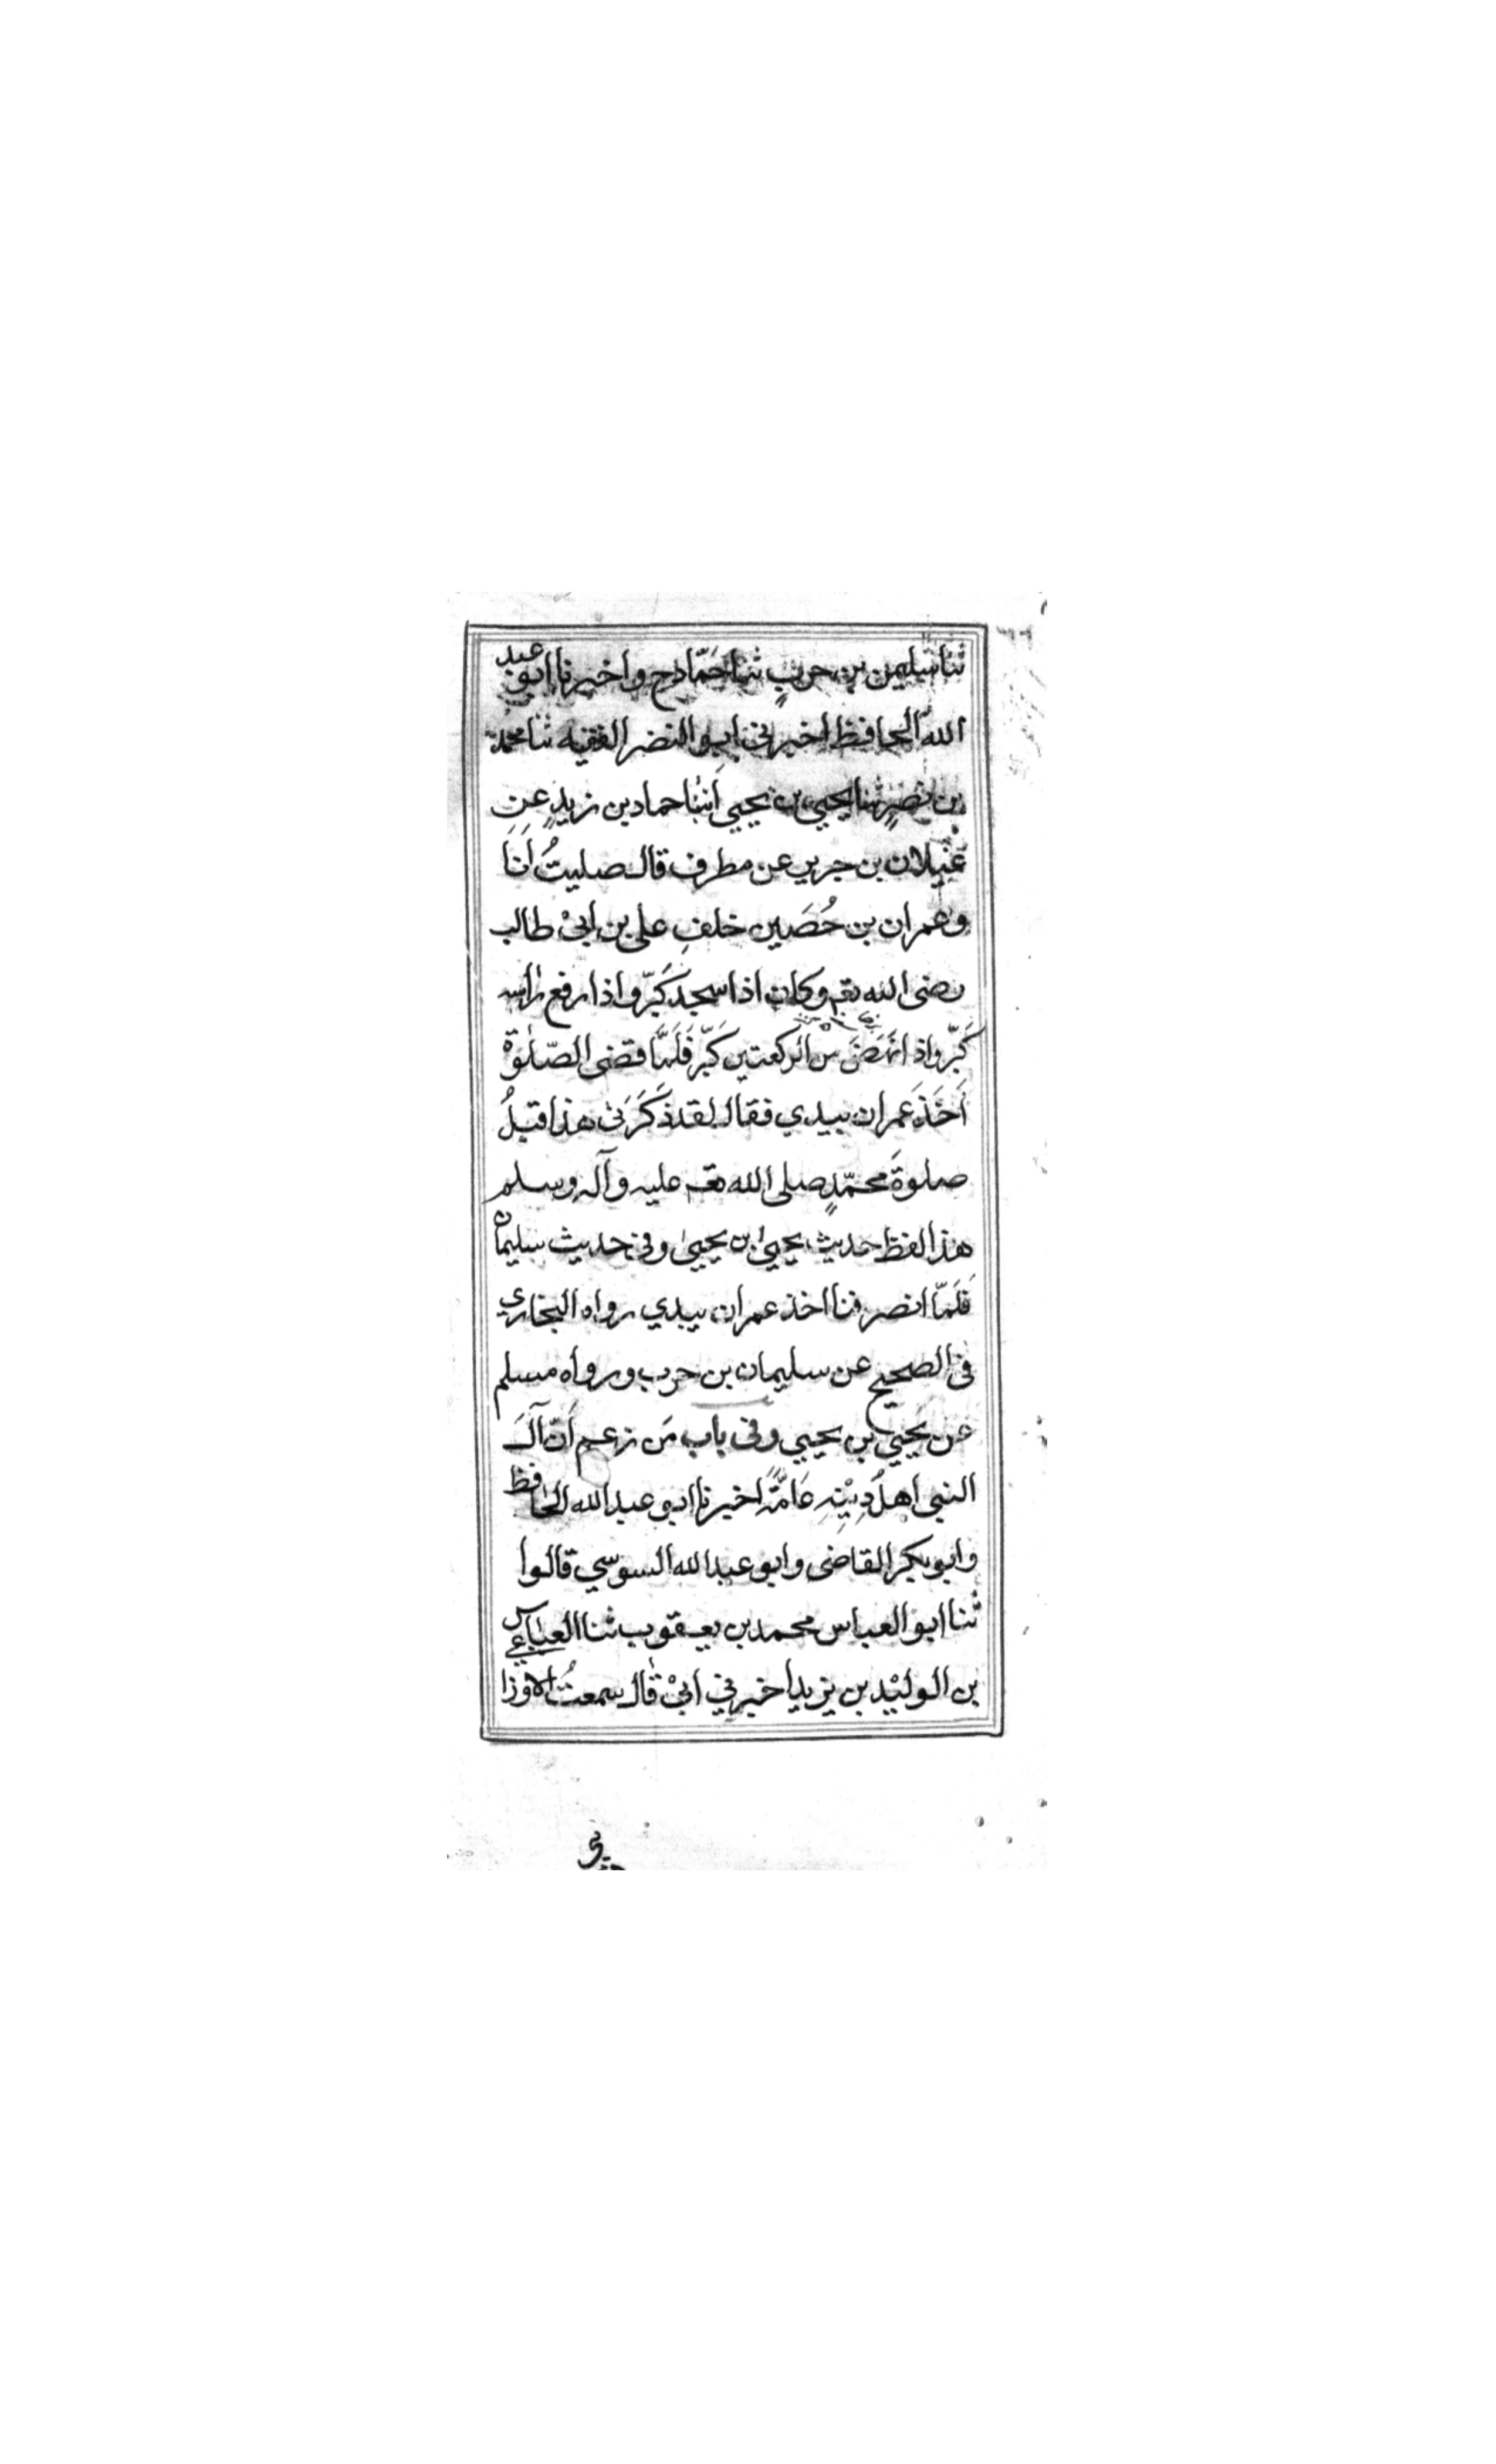 ثنا سليمن بن حربٍ ثنا حَمّاد ح واخبرنا ابو عبد
الله الحافظ اخبرنى ابو النضر الفقيه ثنا محمد
بن نصرٍ ثنا يحيي بن يحيي اَنبَا حماد بن زيدٍ عن
غيلان بن جرير عن مطرف قال صليتُ اَنَا
وعمران بن حُصَين خلف على بن ابىْ طالب
رضى الله تعـ وكان اذا سجد كَبّر واذا رفع رأسه
كَبّر واذا نَهَضَ من الركعتين كَبّر فَلَمَّا قضى الصّلوٰة
اَخَذَ عمران بيدي فقال لقد ذَكَّرَنى هذا قبلُ
صلوة محمّدٍ صلى الله تعـ عليه وآله وسلم
هذا لفظ حديث يحيىٰ بن يحيىٰ وفى حديث سليمان
فَلَمّا انصرفنا اخذ عمران بيدي رواه البخاري
فى الصحيح عن سليمان بن حرب ورواه مسلم
عن يحيي بن يحيي وفى باب مَن زعم اَن آلَ
النبى اهلُ دِيْنِهِ عَامَّةً اخبرنا ابو عبد الله الحافظ
وابو بكر القاضى وابو عبد الله السوسي قالوا
ثنا ابو العباس محمد بن يعقوب ثنا العباس
بن الوليْد بن يزيد اخبرني ابىْ قال سمعتُ الاوزاعى